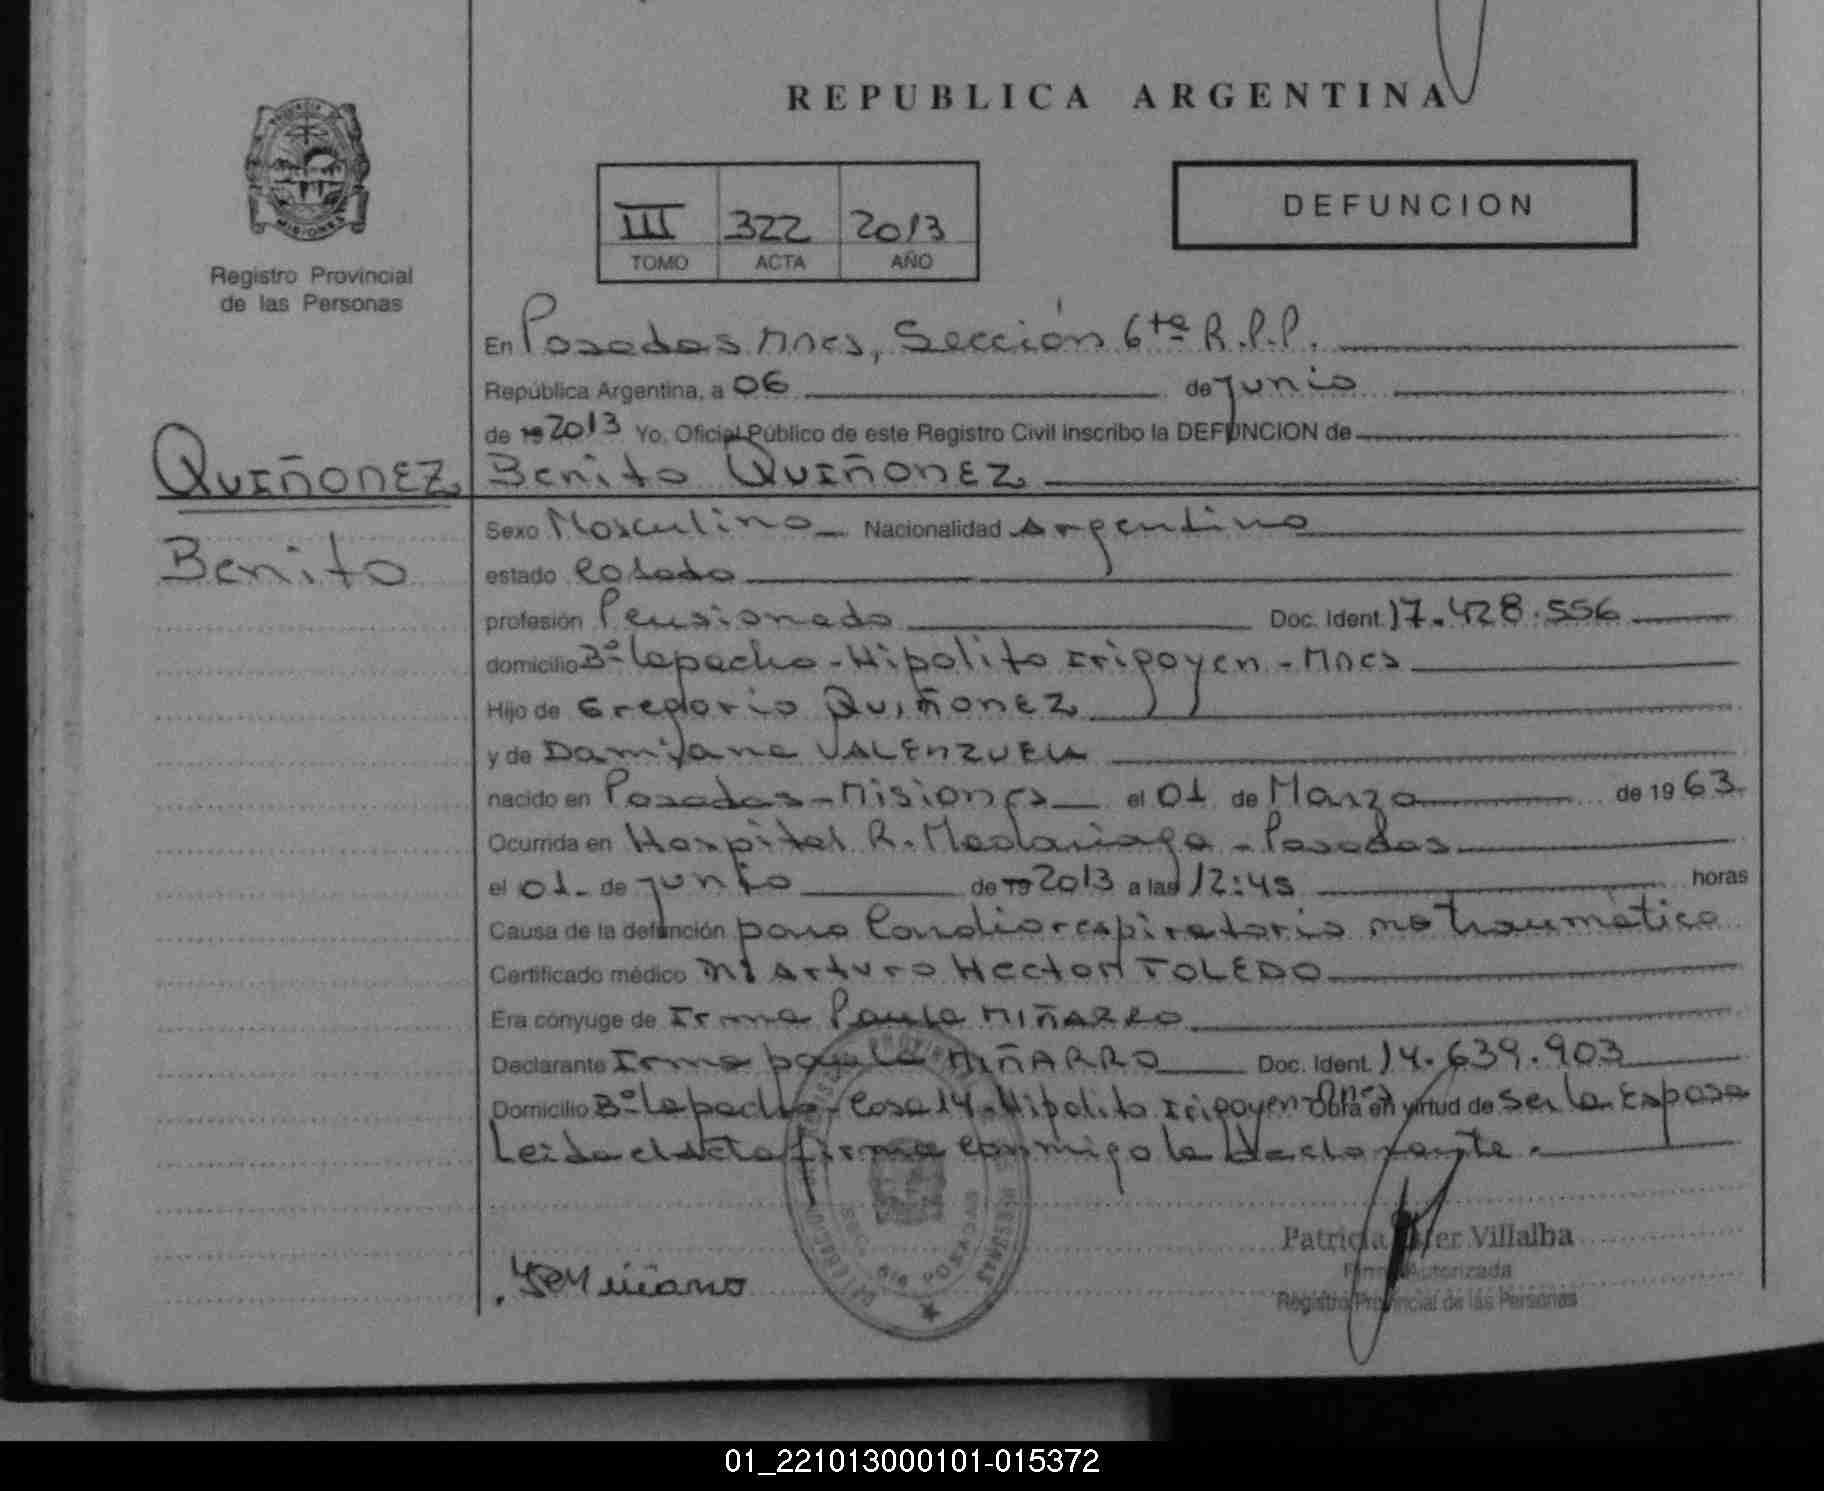 REPUBLICA ARGENTINA
PROVINCIA
MISIONES
Registro Provincial
de las Personas
III 322 2013
TOMO ACTA AÑO
DEFUNCION
En Posadas Mnes, Sección 6ta R.P.P.
República Argentina, a 06 de junio
de 19 2013 Yo, Oficial Público de este Registro Civil inscribo la DEFUNCION de
QUIÑONEZ Benito QUIÑONEZ
Benito
Sexo Masculino Nacionalidad Argentino
estado Casado
profesión Pensionado Doc. Ident. 17.428.556
domicilio Bº Lapacho - Hipolito Irigoyen - Mnes
Hijo de Gregorio QUIÑONEZ
y de Damiana VALENZUELA
nacido en Posadas - Misiones el 01 de Marzo de 1963
Ocurrida en Hospital R. Madariaga - Posadas
el 01 - de junio de 19 2013 a las 12:45 horas
Causa de la defunción paro Cardiorespiratorio no traumático
Certificado médico Arturo Hector TOLEDO
Era cónyuge de Irma Paula MIÑARRO
Declarante Irma paula MIÑARRO Doc. Ident. 14.639.903
Domicilio Bº Lapacho - Casa 14 - Hipolito Irigoyen - Mnes Obra en virtud de ser la Esposa
Leida el acta firma conmigo la declarante.
Patricia Villalba
Firma Autorizada
Registro Provincial de las Personas
POSADAS
01_221013000101-015372